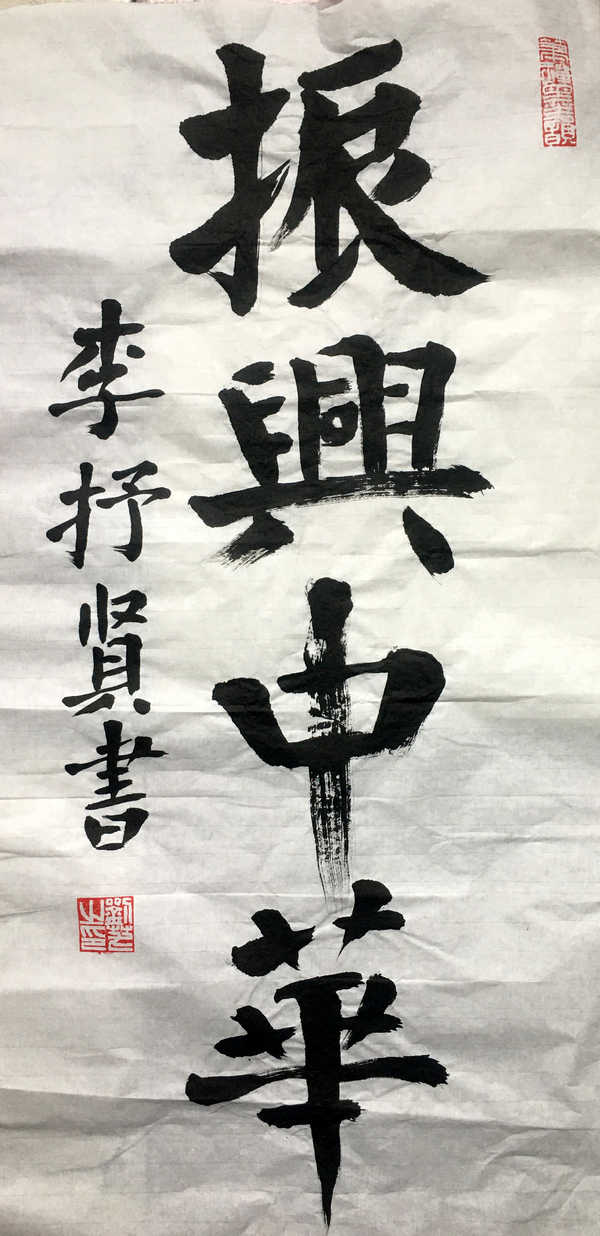 振興中華
李抒贤書